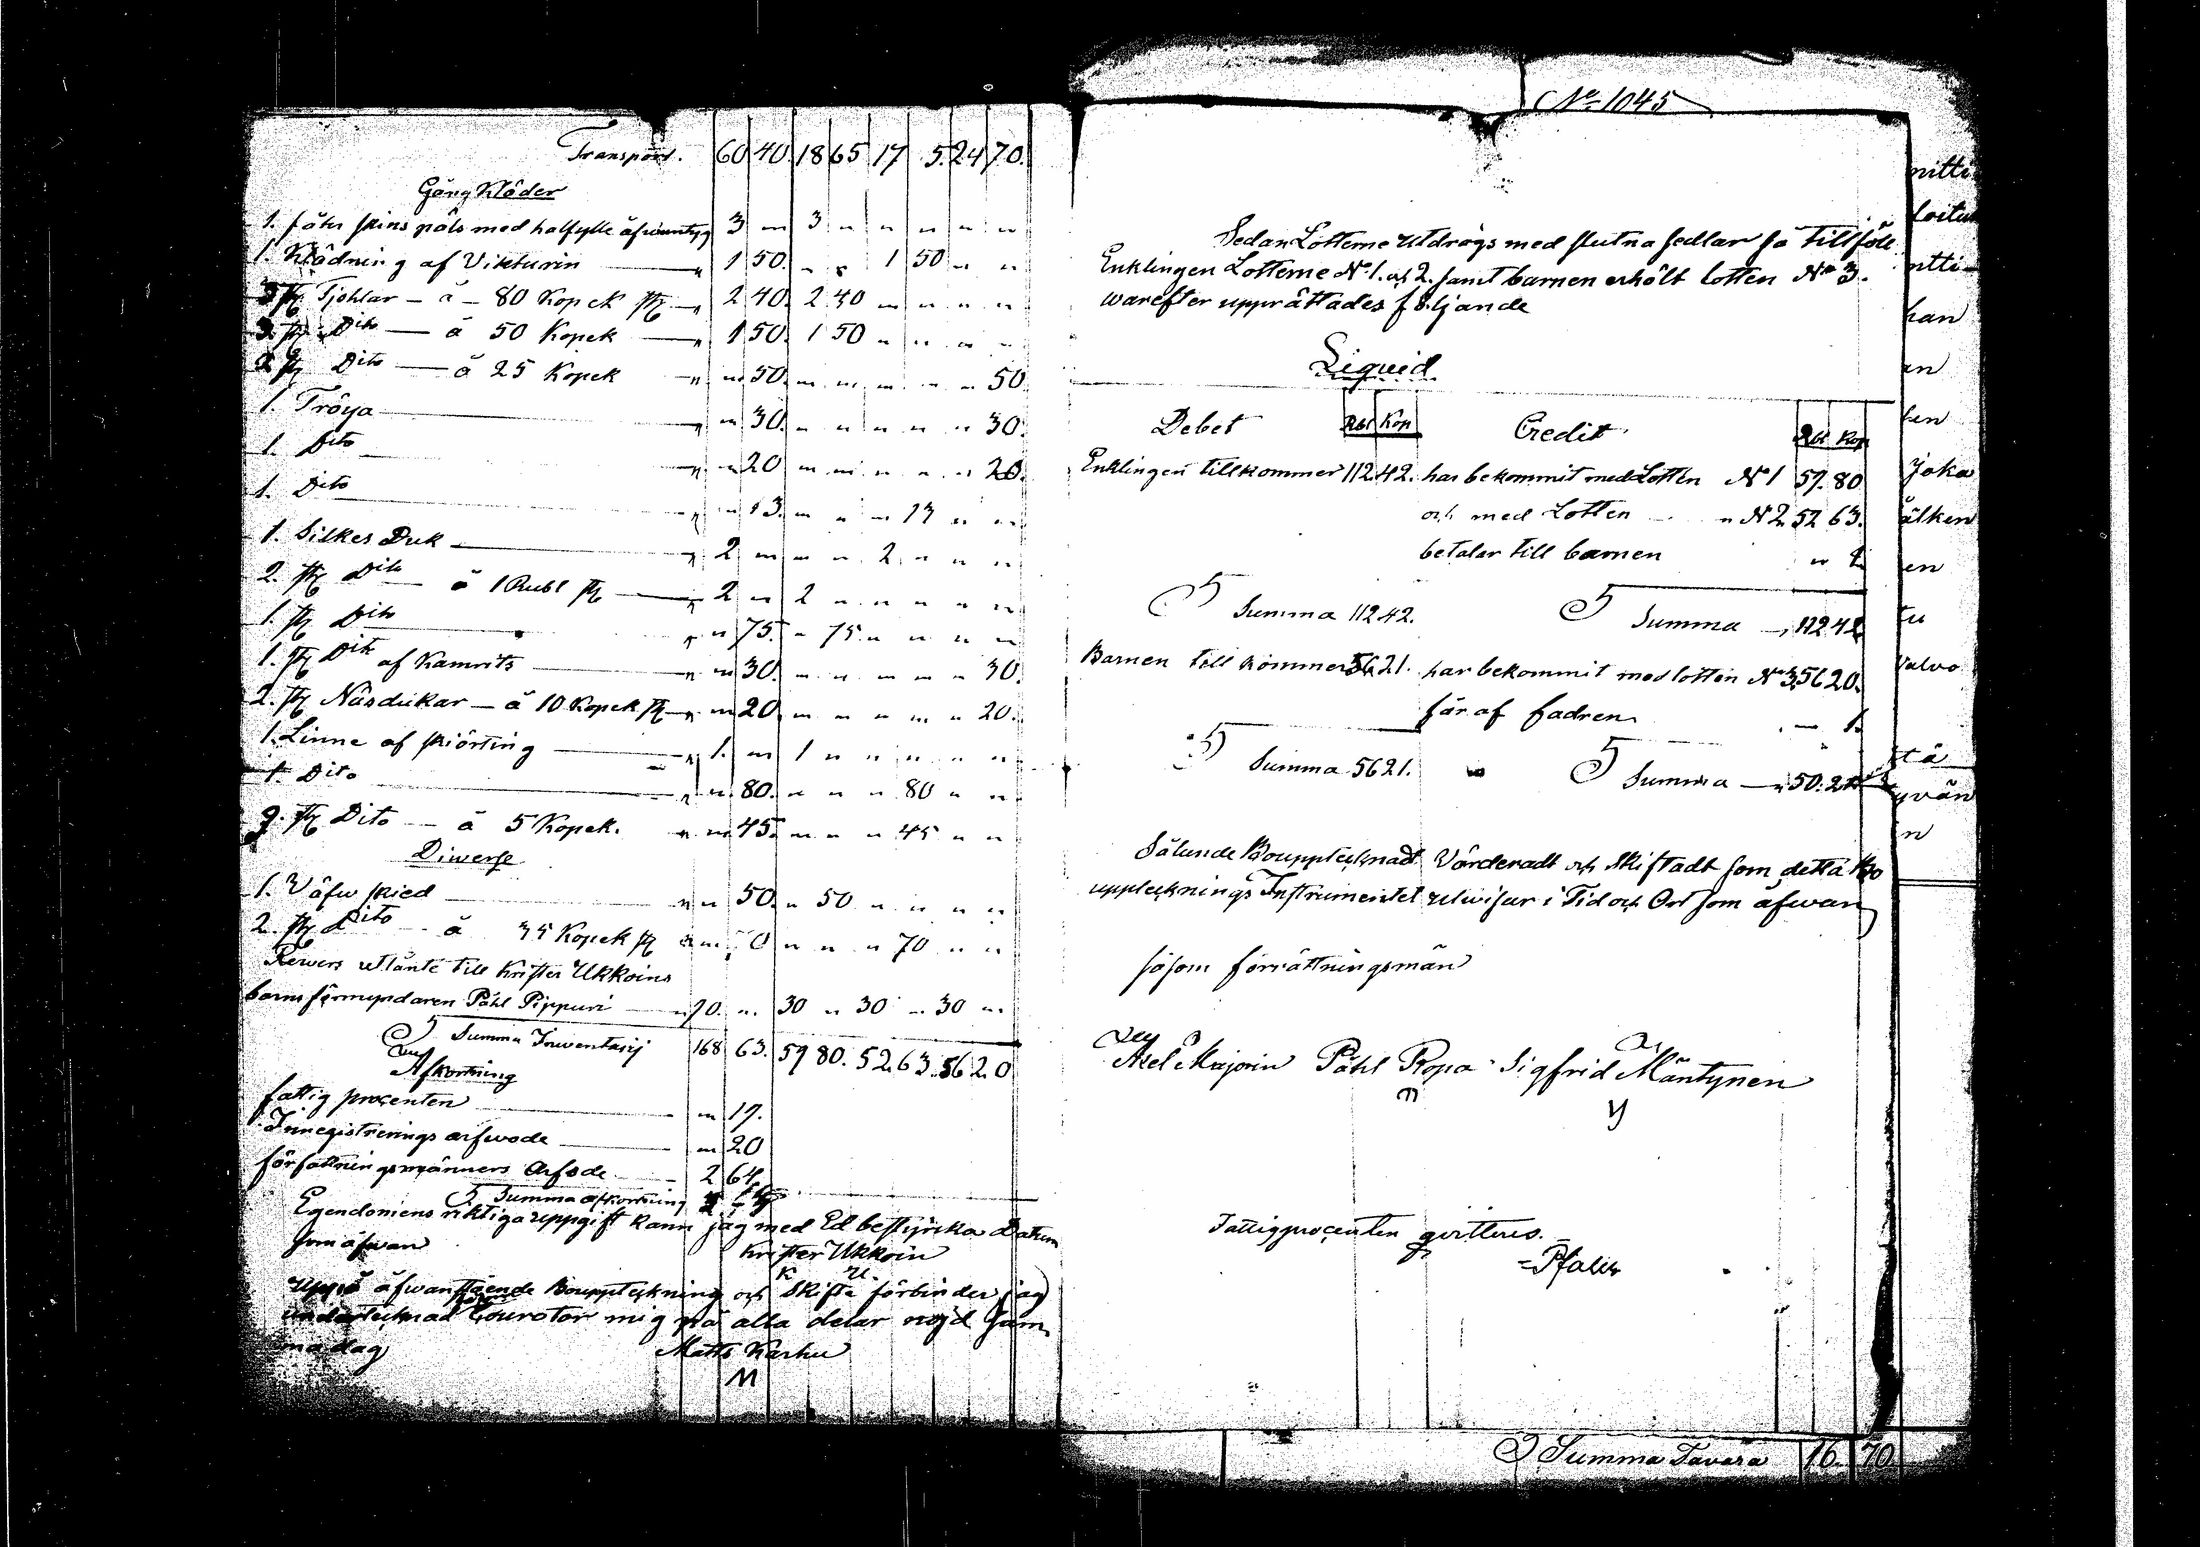 Transport. 60 40 18 65 17 5. 24 70.
Gång Kläder
1. fåhr skins päls med halfylle åfwantyg 3 " 3 " " " " "
1. Klädning af Vikturin " 1 50. " " 1 50 " "
3 st Tjohlar - à - 80 Kopek st " 2 40. 2 40 " " " "
3. st Dito - à 50 Kopek " 1 50. 1 50 " " " "
2 st Dito - à 25 Kopek " " 50. " " " " " 50
1. Tröya " " 30. " " " " " 30.
1. Dito " " 20 " " " " " 20.
1. Dito " " 13. " " " 13 " "
1. Silkes Duk " 2 " " " 2 " " "
2. st Dito à 1 Rubl st " 2 " 2 " " " " "
1. st Dito " " 75. " 75. " " " "
1. st Dito af Kamrits " " 30. " " " " " 30.
2. st Näsdukar - à 10 Kopek st " " 20 " " " " " 20.
1. Linne af skiörting " 1. " 1 " " " " "
1. Dito " " 80. " " " 80 " "
9. st Dito - à 5 Kopek. " " 45. " " " 45 " "
Diwerse
1. Väfw skied " " 50. " 50 " " " "
2. st Dito - à 35 Kopek st " " 70 " " " 70 " "
Rewers utlänte till Krister Ukkoins
barns förmyndaren Påhl Pippuri " 90. " 30 " 30 " 30 "
Summa Inwentarij 168 63. 59 80. 52. 63. 56 20
Afkortning
fattig procenten " 17.
Innegistrerings arfwode " 20
förfättningsmänners Arfode 2 64.
Summa afkortning
Egendomens riktiga uppgift kann jag med Ed bestyrka Datum
som åfwan Krister Ukkoin
K U.
Uppå åfwanstående Bouppteckning och Skifte förbinder jag
undertecknad Courator mig på alla delar nöjd Sam
ma dag Matts Karhu
M
No 1045
Sedan Lotterne utdrogs med slutna sedlar så tillföll
Enklingen Lotterne No 1. och 2. samt barnen erhölt lotten No 3.
warefter upprättades följande
Liquid
Debet Rbl Kop Credit Rbl Kop
Enklingen tillkommer 112 42. har bekommit med Lotten No 1 59. 80
och med Lotten " No 2. 52 63.
betalar till barnen " 1.
Summa 112 42. Summa 112 42
Barnen till kommer 56 21. har bekommit med lotten No 3. 56 20.
får af fadren " 1.
Summa 56 21. Summa 50. 21
Sålunde Boupptecknadt Värderadt och Skiftadt som detta Bo
uppteknings Instrumentet utwisar i Tid och Ort som åfwan
såsom förrättningsmän
Axel Marjoin Påhl Ropa Sigfrid Mäntynen
Fattigprocenten qvitteras.
nitti
loitu
ntti
han
en
hen
Joka
älken
en
tu
valvo
stä
yvän
in
Summa Tavara 16. 70